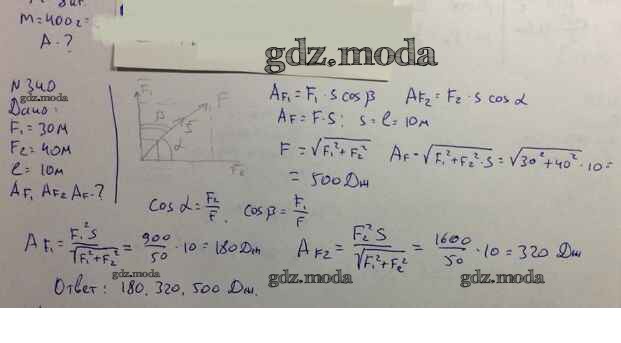 M=400г=
A-?
gdz.moda
N340
gdz.moda
Дано:
F₁=30м
F₂=40м
ℓ=10м
A_F₁ A_F₂ A_F.?
F₁
β
S
F
α
F₂
A_F₁=F₁·S cosβ A_F₂=F₂·S cosα
A_F=F·S; s=ℓ=10м
F=√(F₁²+F₂²) A_F=√(F₁²+F₂²·S)=√(30²+40²)·10=
=500Дж
cosα=F₂/F, cosβ=F₁/F
A_F₁=F₁²S/√(F₁²+F₂²)=900/50·10=180Дж A_F₂=F₂²S/√(F₁²+F₂²)=1600/50·10=320Дж
gdz.moda gdz.moda gdz.moda
Ответ: 180, 320, 500 Дж.